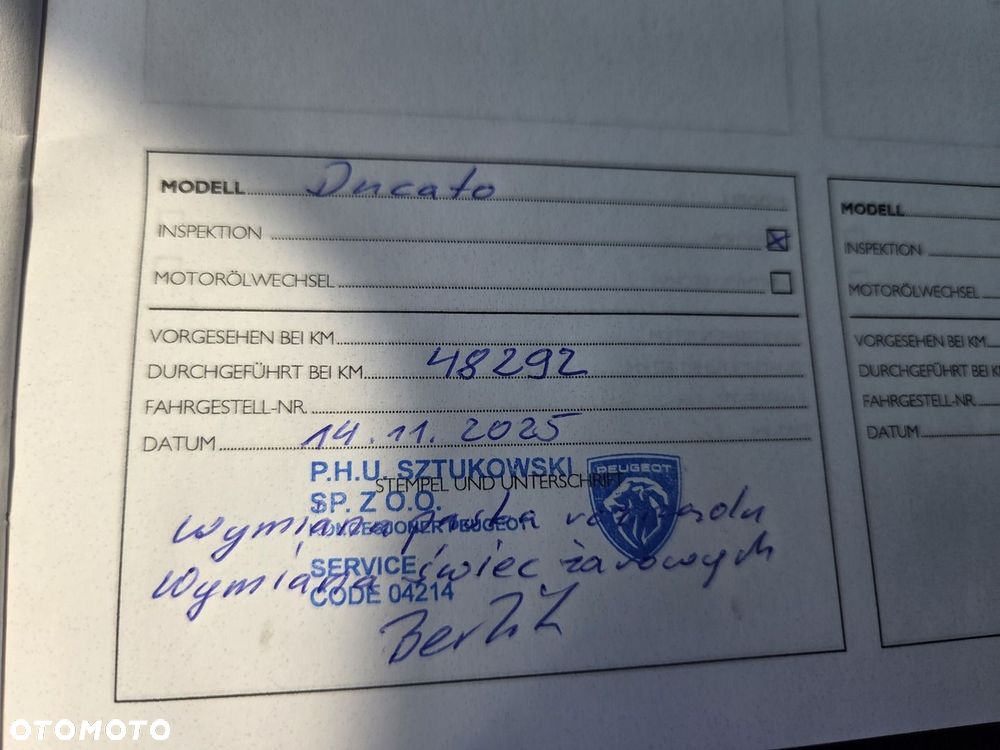 MODELL Ducato
INSPEKTION
MOTORÖLWECHSEL
VORGESEHEN BEI KM
DURCHGEFÜHRT BEI KM 48292
FAHRGESTELL-NR.
DATUM 14.11.2025
P.H.U. SZTUKOWSKI
STEMPEL UND UNTERSCHRIFT
SP. Z O.O.
KONCESJONER PEUGEOT
PEUGEOT
Wymiana paska rozrządu
SERVICE
Wymiana świec żarowych
CODE 04214
MODELL
INSPEKTION
MOTORÖLWECHSEL
VORGESEHEN BEI KM
DURCHGEFÜHRT BEI K
FAHRGESTELL-NR.
DATUM
OTOMOTO